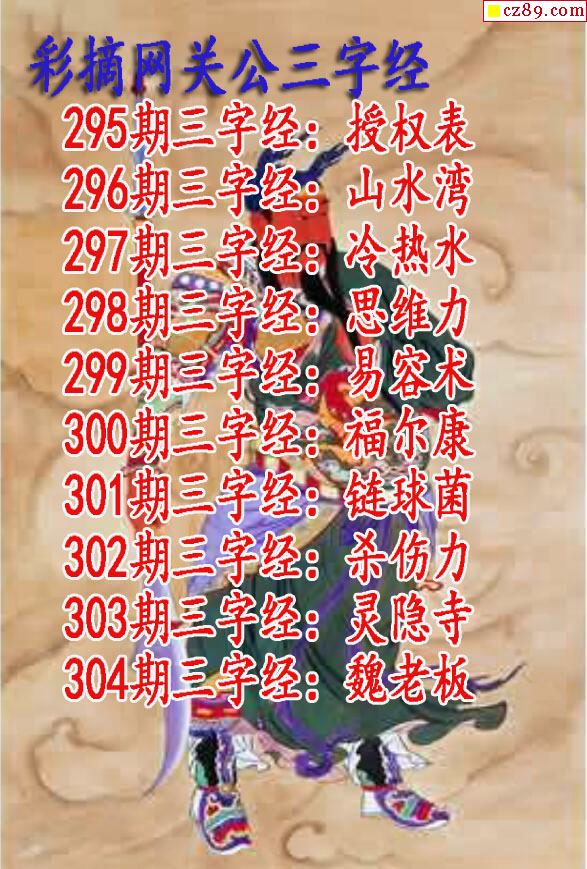 cz89.com
彩摘网关公三字经
295期三字经：授权表
296期三字经：山水湾
297期三字经：冷热水
298期三字经：思维力
299期三字经：易容术
300期三字经：福尔康
301期三字经：链球菌
302期三字经：杀伤力
303期三字经：灵隐寺
304期三字经：魏老板